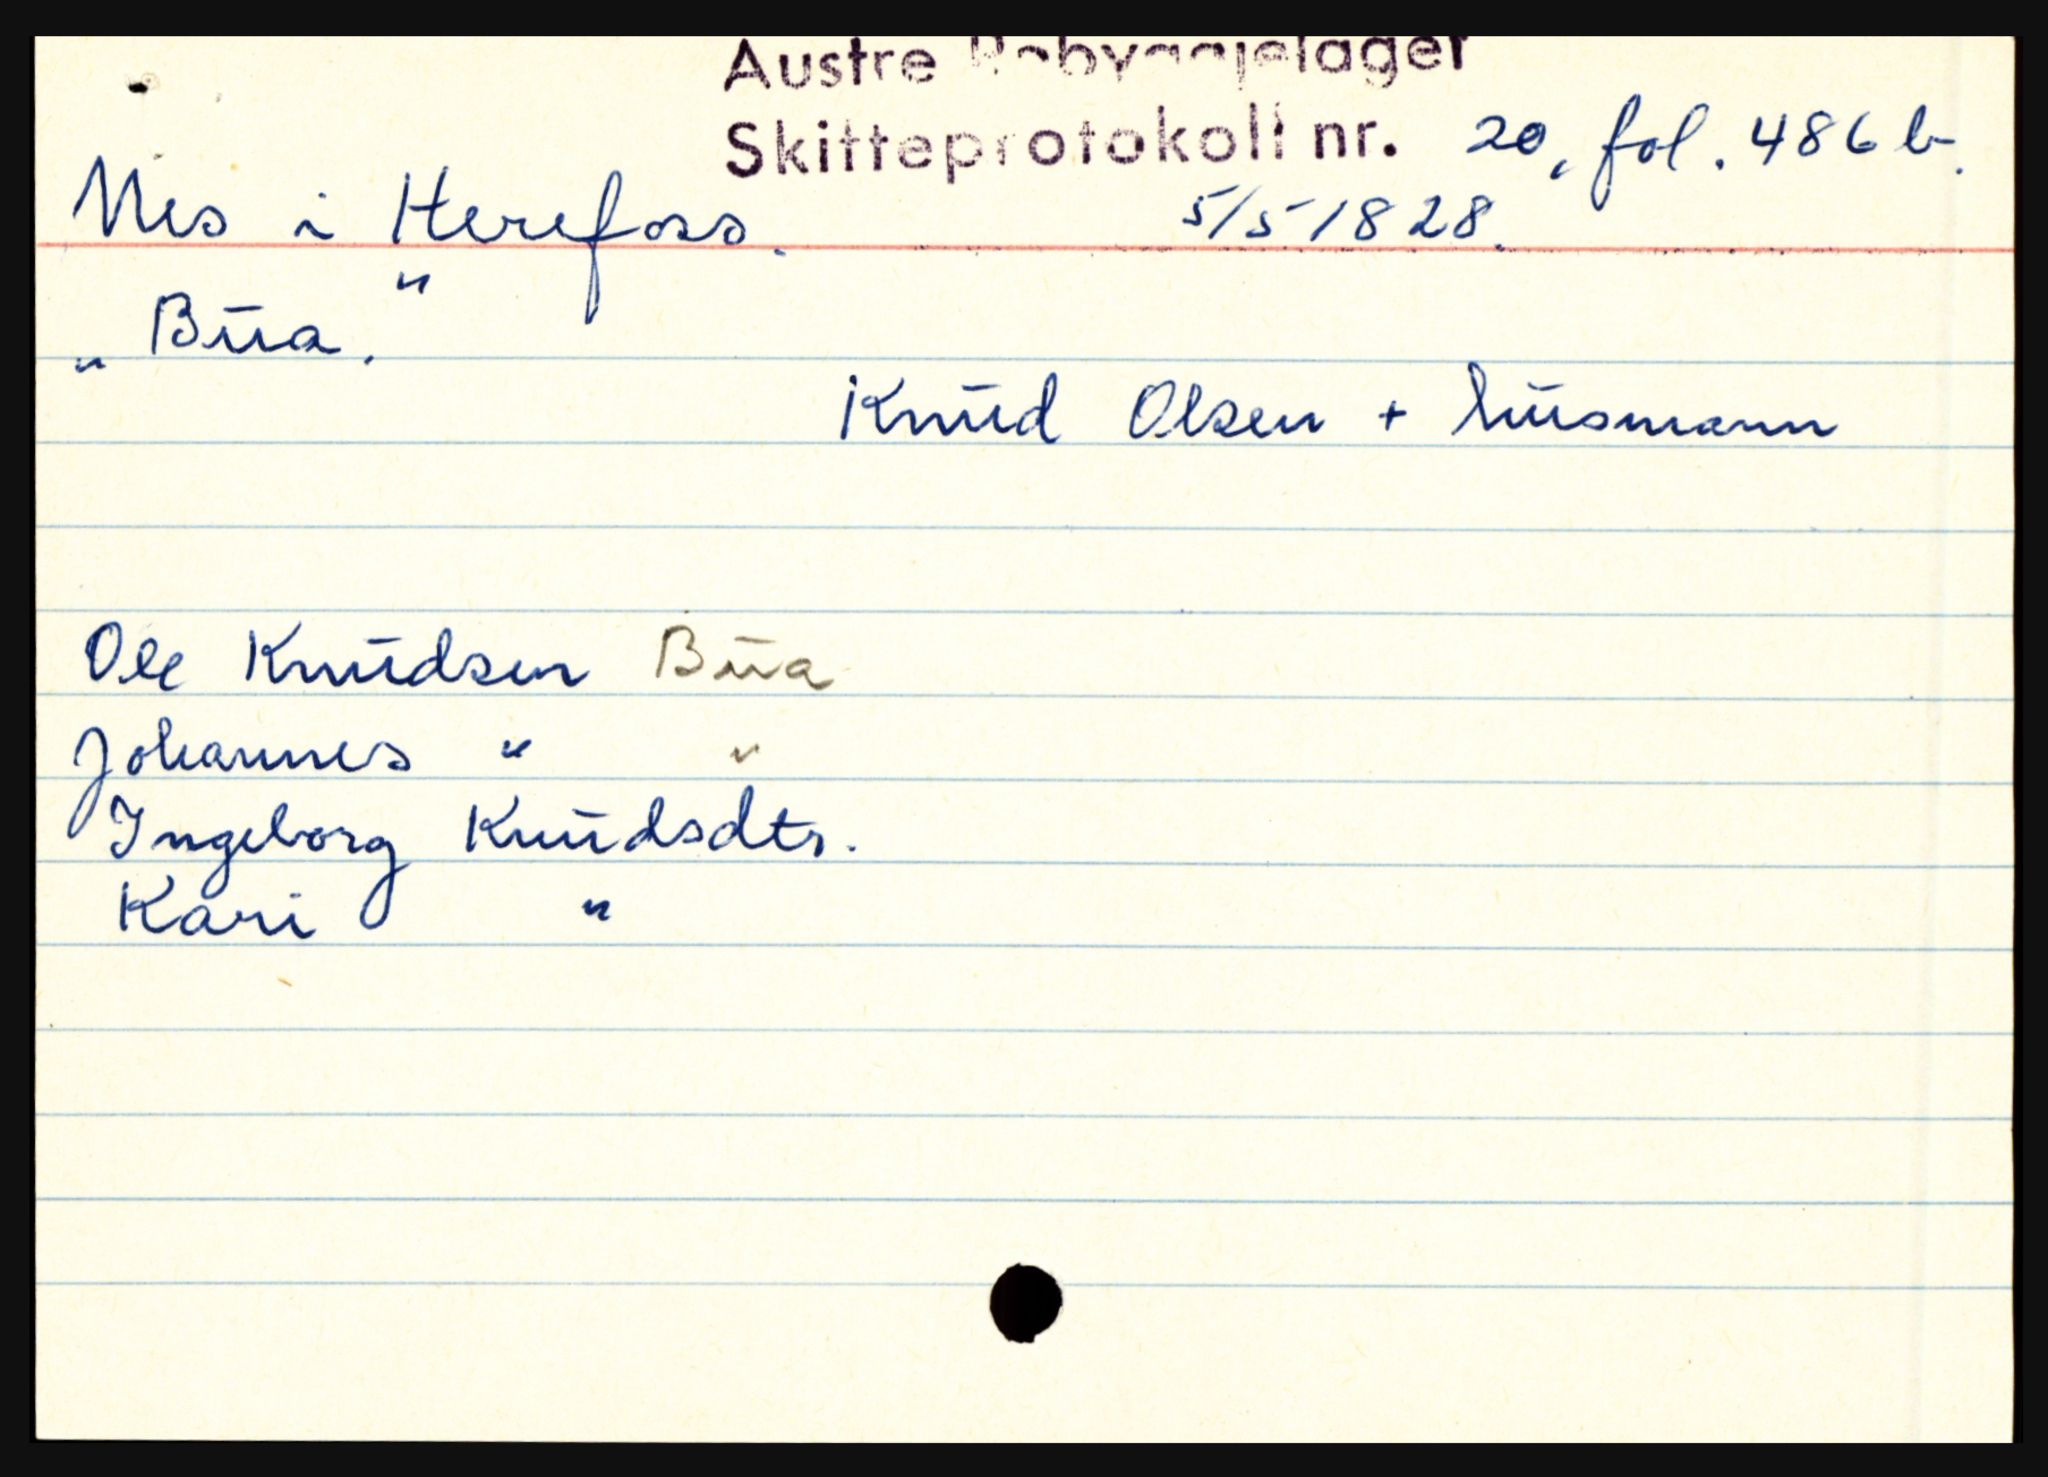 Austre Robyggjelager
Skifteprotokoll nr. 20, fol. 486 b.
Nes i Herefoss. 5/5 1828.
"
" Bua.
Knud Olsen + husmann
Ole Knudsen Bua
Johannes " "
Ingeborg Knudsdtr.
Kari "